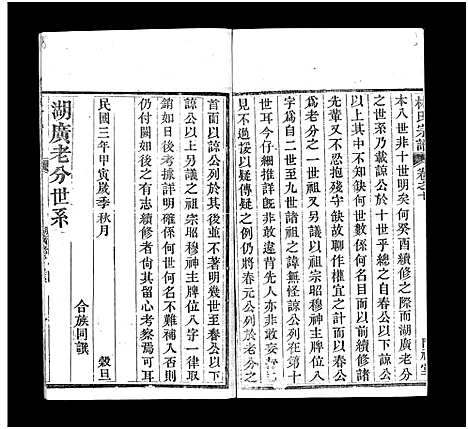 林氏宗譜 卷之十
本八世非十世明矣何癸酉續修之際而湖廣老分
之世系乃載諒公於十世乎總之自春公以下諒公
以上其中不知缺何世數係何名目而以前續修諸
先輩又不忍抱殘守缺故聊作權宜之計而以春公
爲老分之一世祖又另議以祖宗昭穆神主牌位八
字爲自二世至九世諸祖之諱無怪諒公列在第十
世耳今仔細推詳旣非敢違背先人亦非敢妄
不過援以疑傳疑之例仍將春元公列於老分之
首面以諒公列於其後並不著明幾世至春公以下
諒公以上另議之祖宗昭穆神主牌位八字一律取
銷如日後考據詳明確係何世何名不難補入否則
仍付闕如後之有志續修者尚其留心考察焉可耳
民國三年甲寅歲季秋月 穀旦
合族同識
湖廣老分世系